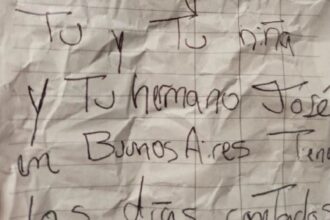 Tu y Tu niña
y Tu hermano José
en Buenos Aires Tiene
los días contados